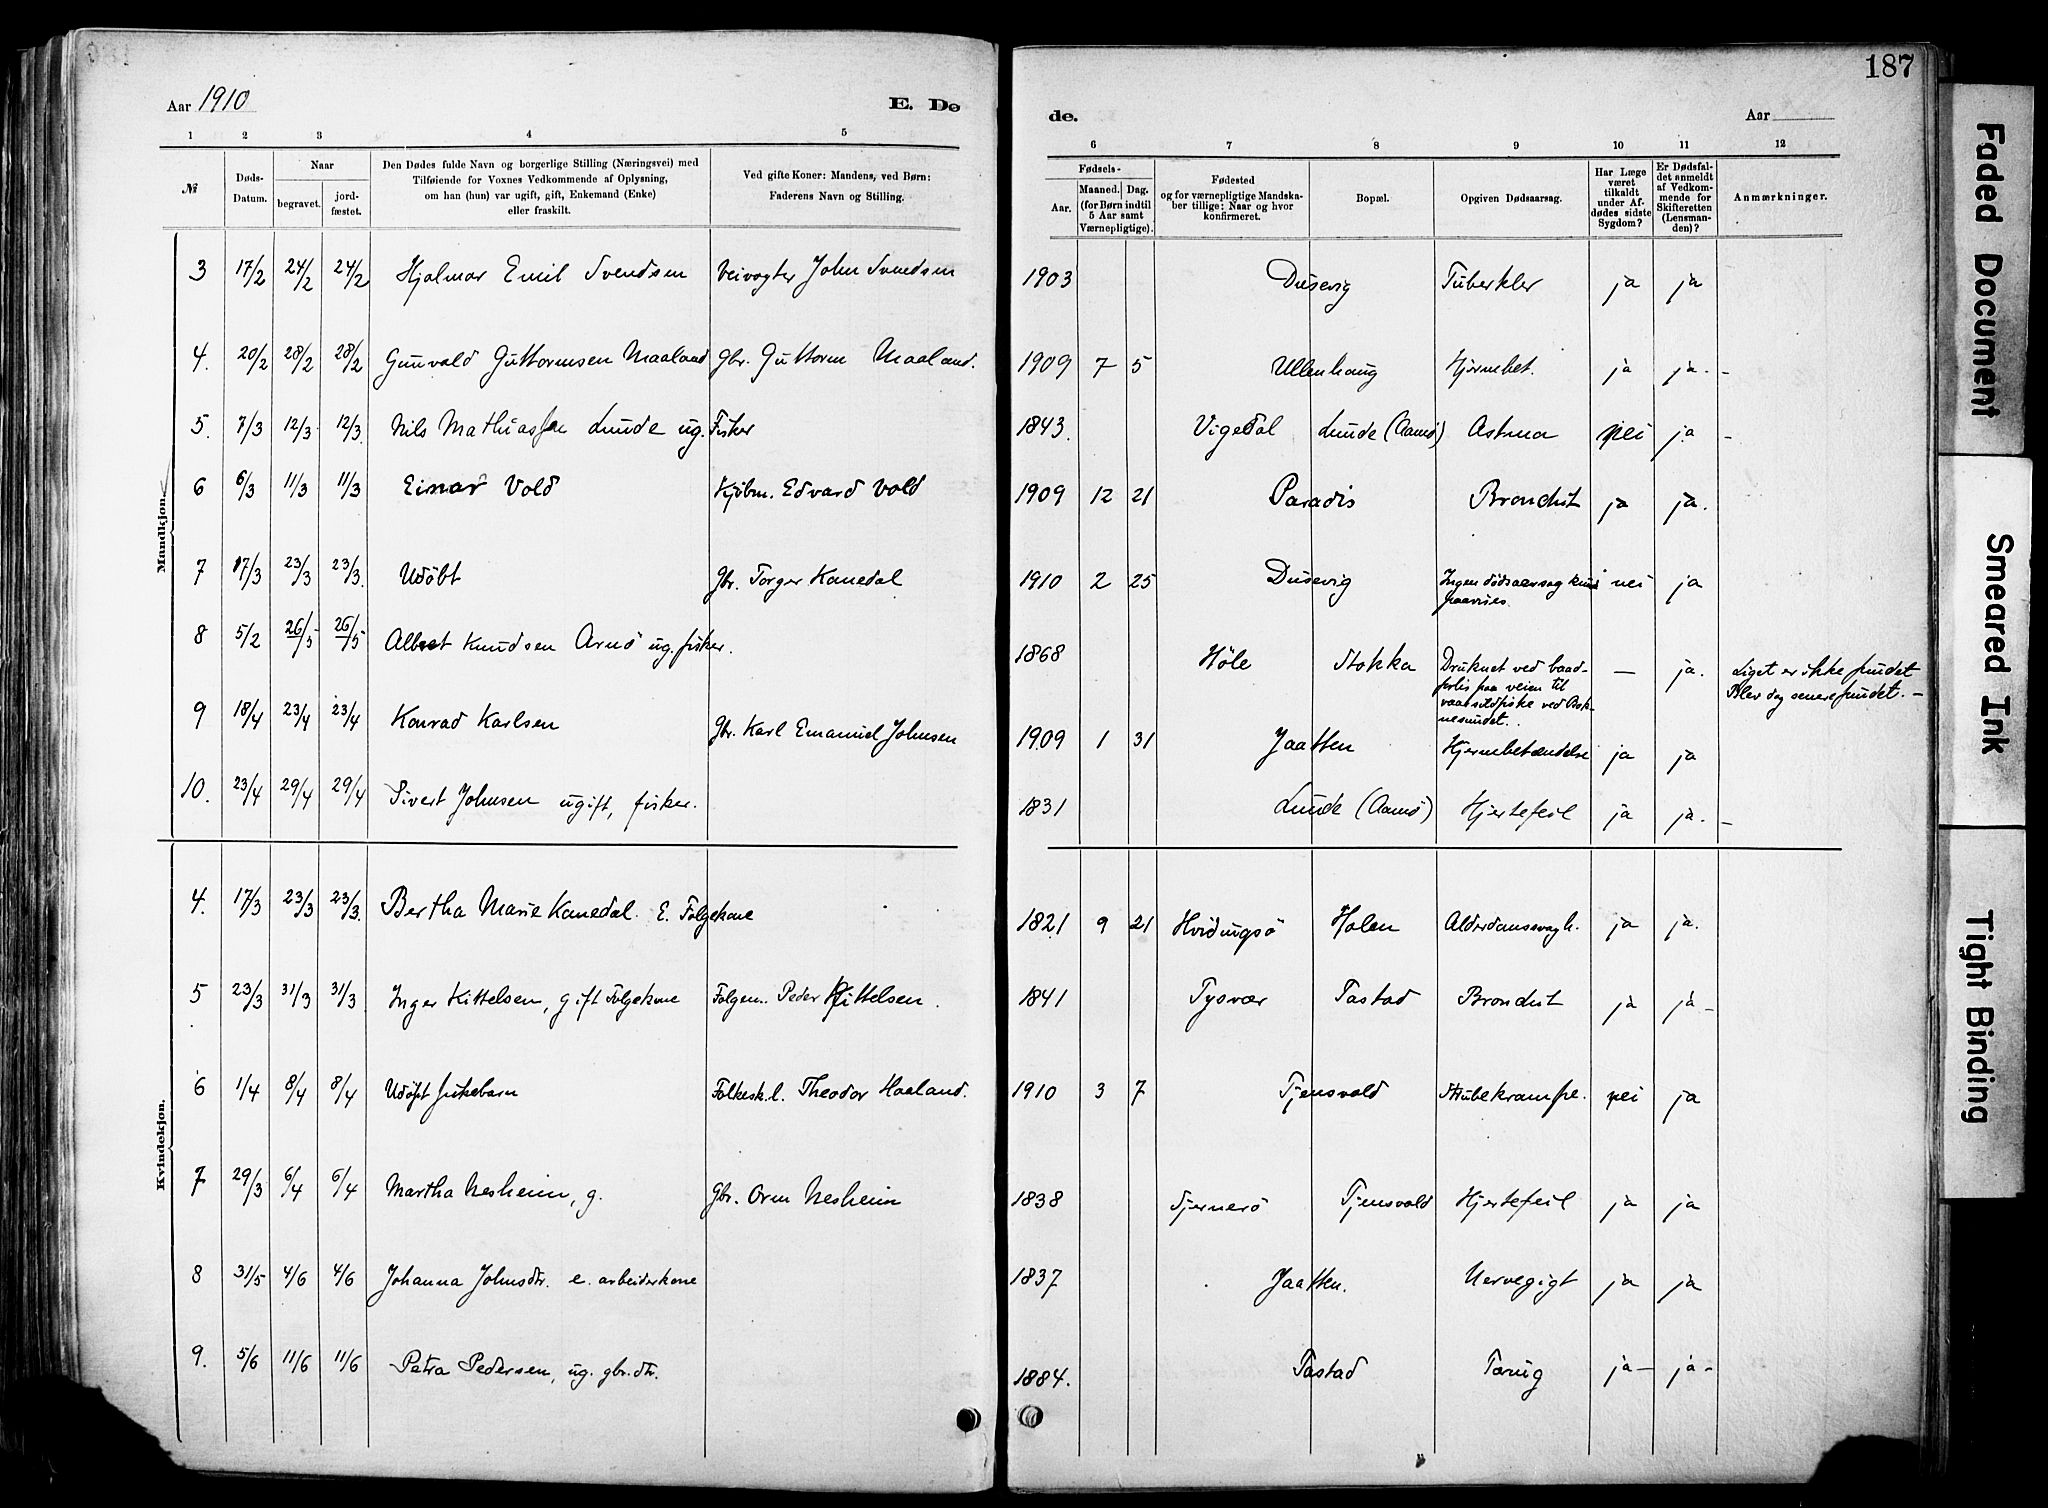 187
Aar 1910 E. Dø de. Aar
1 2 3 4 5 6 7 8 9 10 11 12
№ Døds-Datum. Naar begravet. jordfæstet. Den Dødes fulde Navn og borgerlige Stilling (Næringsvei) med Tilføiende for Voxnes Vedkommende af Oplysning, om han (hun) var ugift, gift, Enkemand (Enke) eller fraskilt. Ved gifte Koner: Mandens, ved Børn: Faderens Navn og Stilling. Fødsels- Aar. Maaned. Dag. (for Børn indtil 5 Aar samt Værnepligtige). Fødested og for værnepligtige Mandskaber tillige: Naar og hvor konfirmeret. Bopæl. Opgiven Dødsaarsag. Har Læge været tilkaldt under Afdødes sidste Sygdom? Er Dødsfaldet anmeldt af Vedkommende for Skifteretten (Lensmanden)? Anmærkninger.
Mandkjøn.
3 17/2 24/2 24/2 Hjalmar Emil Svendsen Veivogter John Svendsen 1903 Dusevig Tuberkler ja ja
4. 20/2 28/2 28/2 Gunvald Guttormsen Maaland Gbr. Guttorm Maaland. 1909 7 5 Ullenhaug Hjernebet. ja ja. -
5. 7/3 12/3 12/3. Nils Mathiassen Lunde ug. Fisker 1843. Vigedal Lunde (Aamø) Astma nei ja -
6 6/3 11/3 11/3 Einar Vold Kjøbm. Edvard Vold 1909 12 21 Paradis Bronchit ja ja.
7 17/3 23/3 23/3. Udöbt Gbr. Torger Kanedal 1910 2 25 Dusevig Ingen dødsaarsag kune paavises. nei ja
8 5/2 26/5 26/5 Albert Knudsen Arnö ug. fisker. 1868 Höle Stokka Druknet ved baadforlis paa veien til vaarsildfiske ved Boknesundet. — ja. Liget er ikke fundet Blev dog senere fundet. -
9 18/4 23/4 23/4 Konrad Karlsen Gbr. Karl Emanuel Johnsen 1909 1 31 Jaatten Hjernebetændelse ja ja
10. 23/4 29/4 29/4 Sivert Johnsen ugift, fisker. 1831 Lunde (Aamø) Hjertefeil ja ja. -
Kvindekjøn.
4. 17/3 23/3 23/3. Bertha Marie Kanedal. E. Folgekone 1821 9 21 Hvidingsö Holen Alderdomssvagh. ja ja.
5 23/3 31/3 31/3 Inger Kittelsen, gift Folgekone Folgem. Peder Kittelsen. 1841 Tysvær Tastad Bronchit ja ja -
6 1/4 8/4 8/4 Udöpt Pikebarn Folkesk.l. Theodor Haaland. 1910 3 7 Tjensvold Strubekrampe. nei ja
7 29/3 6/4 6/4 Martha Nesheim, g. Gbr. Orm Nesheim 1838 Sjernerö Tjensvold Hjertefeil ja ja
8 31/5 4/6 4/6 Johanna Johnsdtr. e. arbeiderkone 1837 Jaatten. Nervegigt ja ja
9. 5/6 11/6 11/6 Petra Pedersen, ug. gbr.dtr. 1884. Tastad Tæring ja - ja -
Faded Document
Smeared Ink
Tight Binding